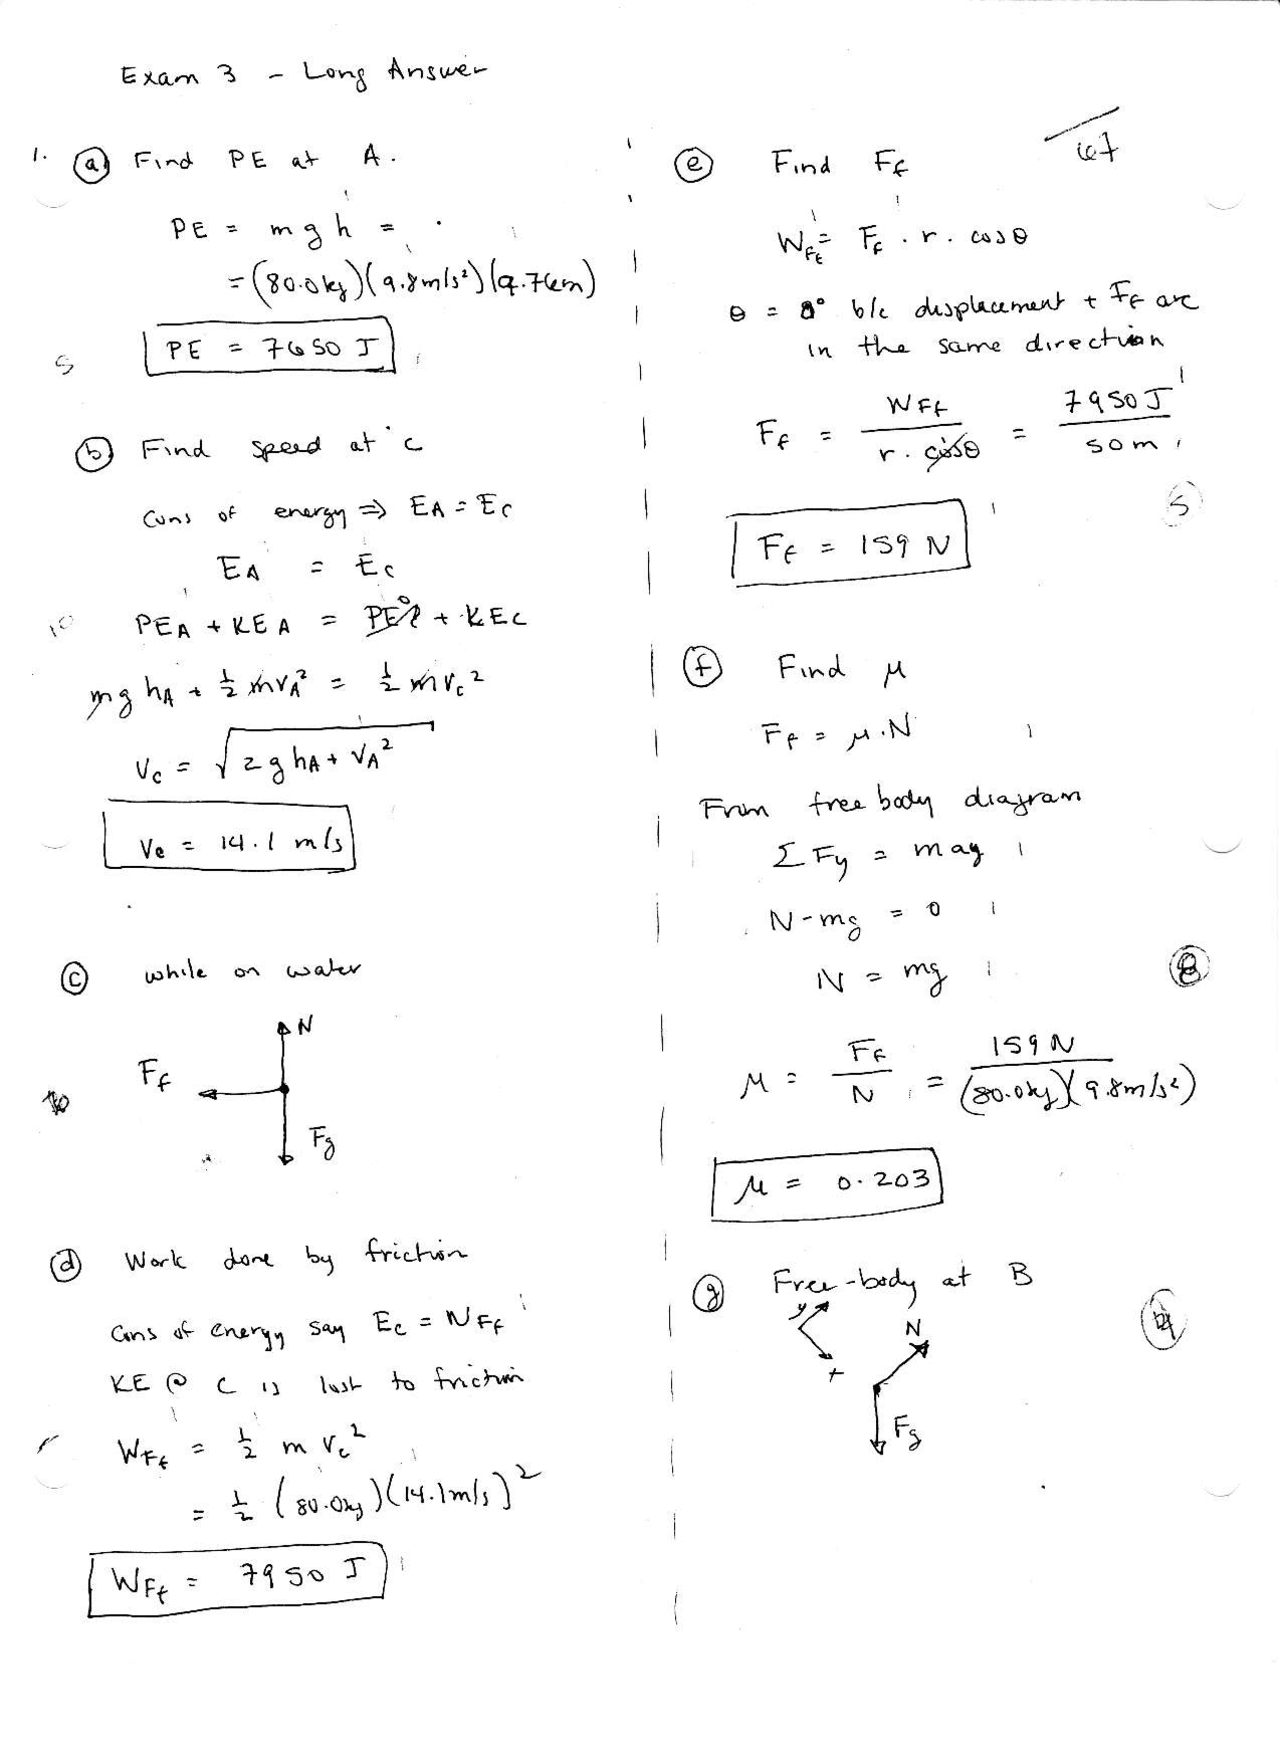 Exam 3 - Long Answer
1. (a) Find PE at A.
PE = mgh =
= (80.0kg)(9.8m/s²)(9.76m)
PE = 7650 J
5
(b) Find speed at c
Cons of energy ⇒ EA = Ec
EA = Ec
10
PEA + KEA = PEc⁰ + KEc
mghA + ½ mvA² = ½ mvc²
vc = √(2ghA + vA²)
vc = 14.1 m/s
(c) while on water
N
Ff
Fg
(d) Work done by friction
Cons of energy say Ec = WFf
KE @ C is lost to friction
WFf = ½ m vc²
= ½ (80.0kg)(14.1m/s)²
WFf = 7950 J
67
(e) Find Ff
WFf = Ff · r · cosθ
θ = 0° b/c displacement + Ff are
in the same direction
Ff = WFf / r · cosθ = 7950J / 50m
5
Ff = 159 N
(f) Find μ
Ff = μ·N
From free body diagram
ΣFy = may
N-mg = 0
N = mg
8
μ = Ff / N = 159N / (80.0kg)(9.8m/s²)
μ = 0.203
(g) Free-body at B
y
N
x
Fg